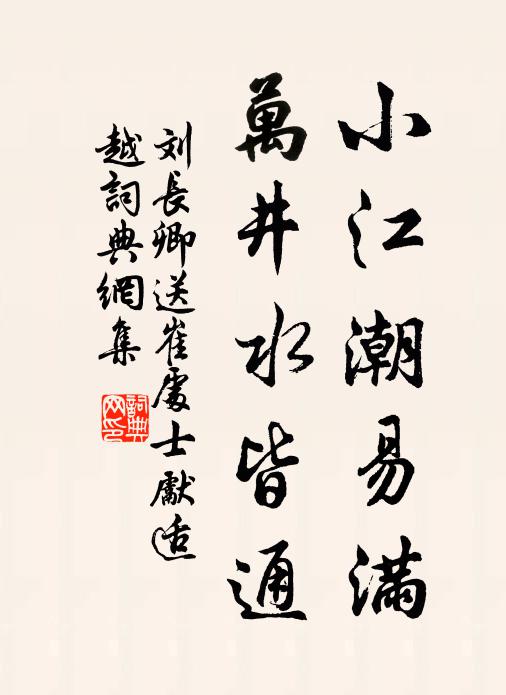 小江潮易滿
萬井水皆通
刘長卿送崔處士獻适
越詞典網集
詞典
网印